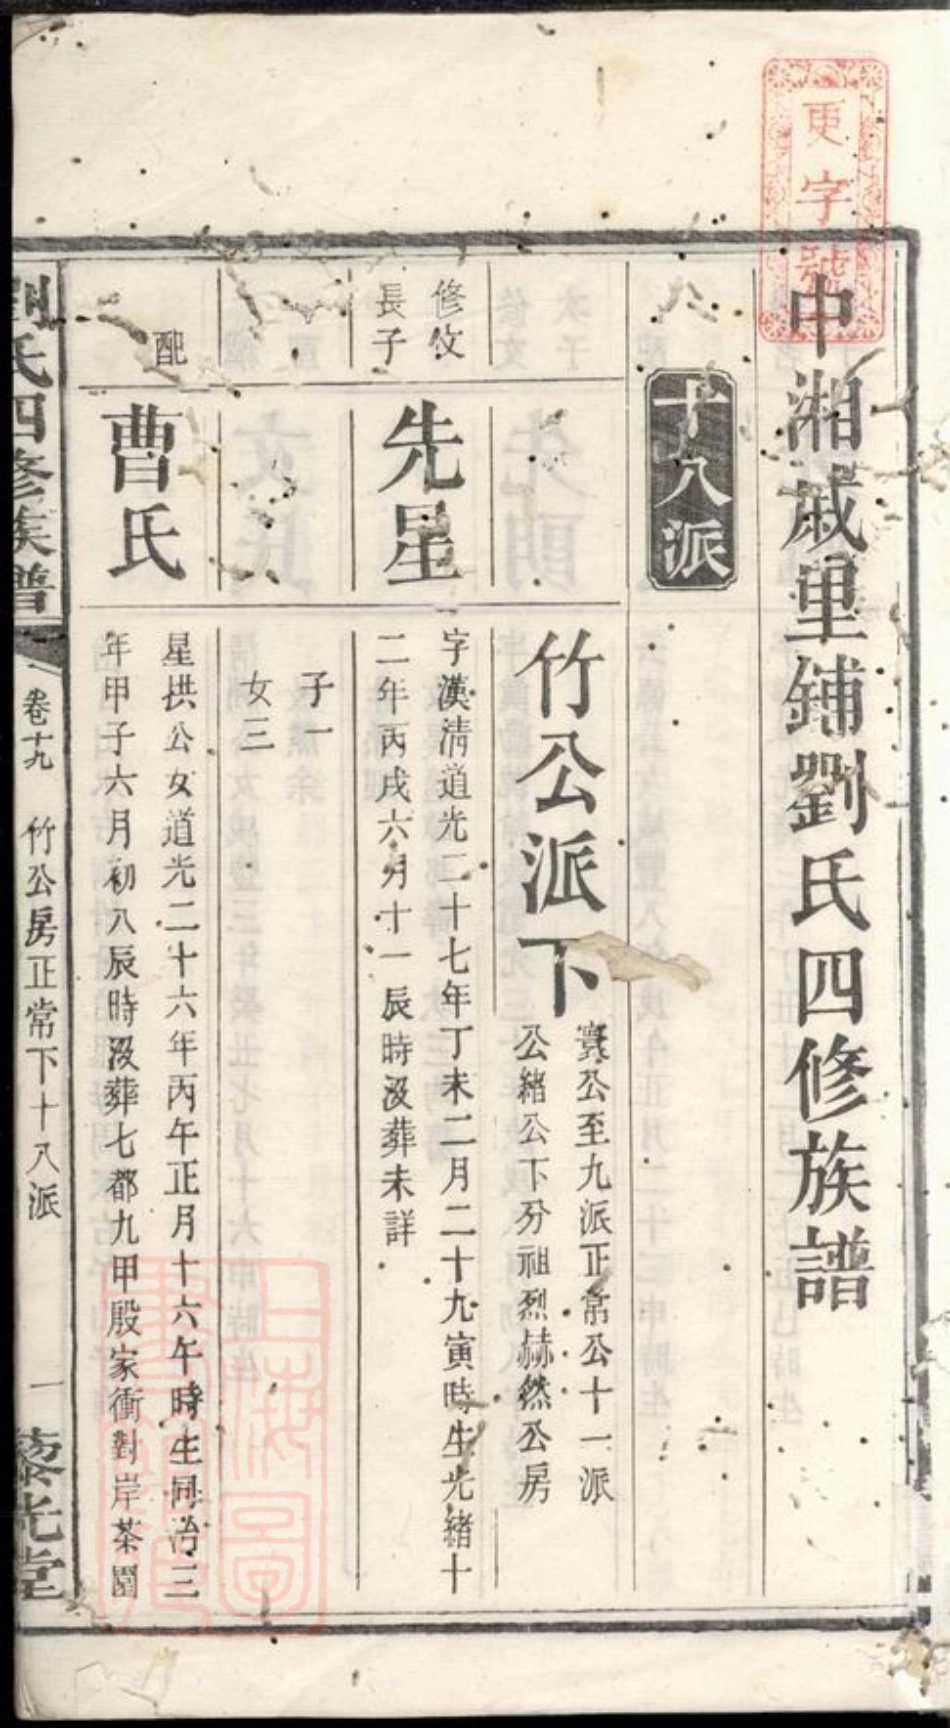 更字號
中湘歲里鋪劉氏四修族譜
十八派
竹公派下
㝢公至九派正常公十一派
公緒公下分祖烈赫然公房
修攵
長子
先星
字漢清道光二十七年丁未二月二十九寅時生光緒十
二年丙戌六月十一辰時沒葬未詳
子一
女三
配
曹氏
星拱公女道光二十六年丙午正月十六午時生同治三
年甲子六月初八辰時沒葬七都九甲殿家衝對岸茶園
劉氏四修族譜
卷十九
竹公房正常下十八派
一
藜光堂
上海圖書館藏